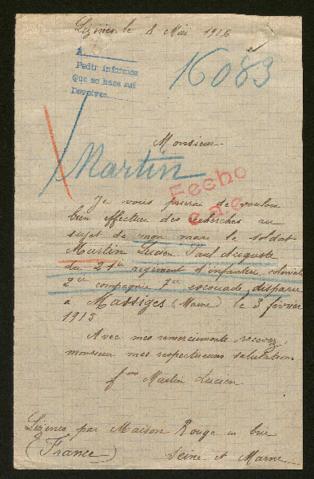 le 8 Mai 1916
A
Pedir informes
Que se hace
Devolver
16083
Monsieur
Martin
Fecho
Je vous prierai de vouloir
bien effectuer des recherches au
sujet de mon mari le soldat
Martin Lucien Paul Auguste
du 21e régiment d'infanterie coloniale
2e compagnie 7e escouade, disparu
à Massiges (Marne) le 3 février
1915
Avec mes remerciements recevez
monsieur mes respectueuses salutations
Martin Lucien
par Maison Rouge en Brie
(France) Seine et Marne